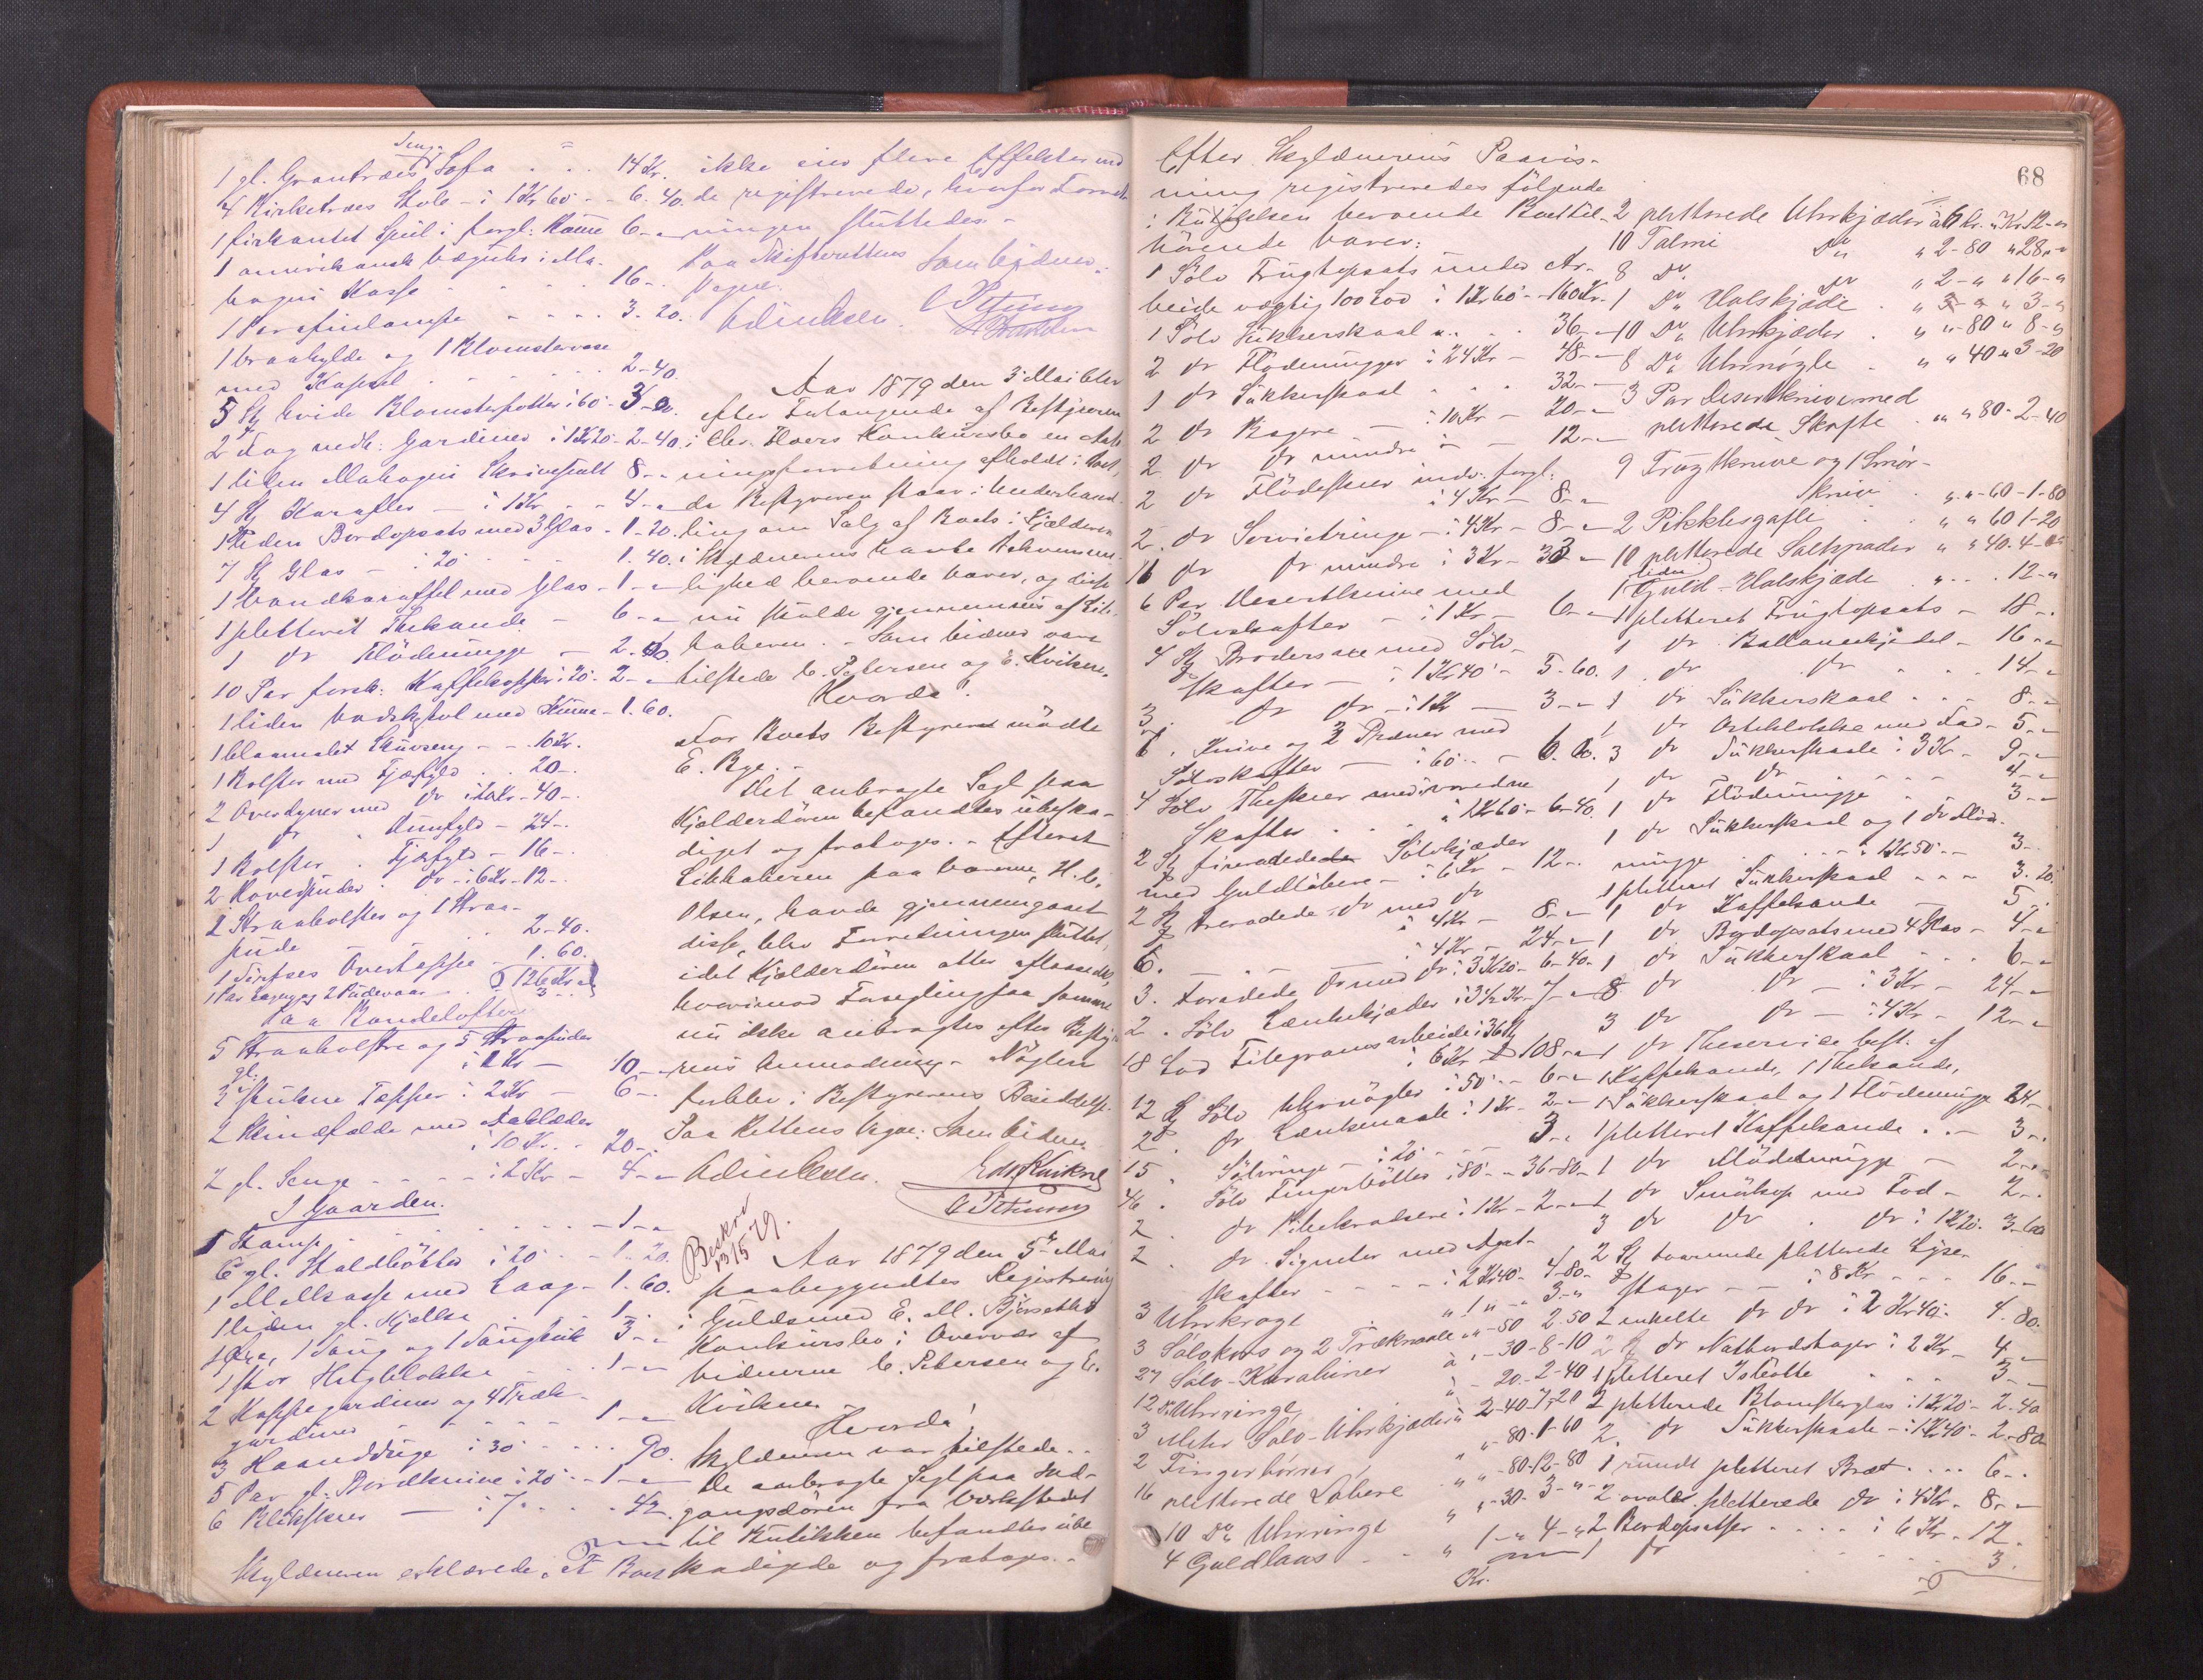 1 gl. Grantræes Senge Sofa . . 14 Kr.
4 Birketræes Stole – i 1 Kr 60 – 6. 40.
1 firkantet Speil i forgl: Ramme 6 –
1 amerikansk Væguhr i Ma-
hagni Kasse . . . . 16 –
1 Parafinlampe . . . 3. 20.
1 Vraahylde og 1 Blomstervase
med Kapsel . . . . 2–40.
5 St hvide Blomsterpotter i 60 – 3–00.
2 Fag nedh: Gardiner i 1 Kr 20 – 2–40.
1 liden Mahogni Skrivepult 8 –
4 St Karafler – i 1 Kr – 4 –
1 liden Bordopsats med 3 Glas – 1–20.
7 St Glas – i 20 . . 1. 40.
1 Vandkaraffel med Glas – 1 –
1 pletteret Thekande – 6 –
1 do Flödemugge – 2. 00.
10 Par forsk: Kaffekopper i 20 – 2 –
1 liden Vadskestol med Kumme – 1. 60.
1 blaamalet Skuvseng – 10 Kr.
1 Bolster med Fjærfyld . . 20 –
2 Overdyner med do i 20 Kr – 40 –
1 do " Dunfyld – 24 –
1 Bolster . Fjærfyld – 16 –
2 Hovedpuder . do – i 6 Kr – 12 –
2 Straabolster og 1 Straa-
pude . . 2–40.
1 Overtæppe – 1. 60.
1 Par Lagen og 2 Pudevaar . . 3 –
Paa Bondeloftet
5 Straabolstre og 5 Straapuder
i 2 Kr – 10 –
3 gl. strukne Tæpper i 2 Kr – 6 –
2 Skindfælde med Aaklæder
i 10 Kr – 20 –
2 gl. Senge . . . i 2 Kr – 4 –
I Gaarden.
1 Stamp . . . . – 1 –
6 gl. Staldbötter i 20 . . – 1. 20.
1 Melkasse med Laag – 1. 60.
1 liden gl. Kjælke . . 1 –
1 Öxe, 1 Saug og 1 Saugkrak 3 –
1 stor Hægteklokke . . 1 –
2 Kappegardiner og 4 Træk-
gardiner . . . . 1 –
3 Haanddüge i 30 . . . . 90.
5 Par gl. Bordknive i 20 – 1 –
6 Blikskeer – i 7 . . . 42.
Skyldneren erklærede, at Boet
ikke eier flere Effekter end
de registrerede, hvorfor Forret-
ningen sluttedes. –
Paa Skifterettens Vegne Som Vidner:
C Petersen
Aar 1879 den 3 Mai blev
efter Forlangende af Bestyreren
i Chr. Hvers Konkursbo en Aab-
ningsforretning afholdt i Boet,
da Bestyreren staar i Underhand-
ling om Salg af Boets i Kjælderen
i Skyldnerens havte Bekvemme-
lighed beroende Varer, og disse
nu skulde gjennemsees af Lik-
haberen. – Som Vidner vare
tilstede C. Petersen og E. Kvikne.
Hvorda!
For Boets Bestyrer mödte
E. Bye.
Det anbragte Segl paa
Kjælderdören befandtes ubeska-
diget og fratoges. – Efterat
Likhaberen paa Varerne, H. C.
Olsen, havde gjennemgaaet
disse, blev Forretningen sluttet,
idet Kjælderdören atter aflaasedes,
hvorimod Forsegling paa samme
nu ikke anbragtes efter Besty-
rens Anmodning. Nöglen
forblev i Bestyrerens Besiddelse.
Paa Rettens Vegne: Som Vidner
Edv Kvikne
C Petersen
Beskrev
13/5 79.
Aar 1879 den 5te Mai
paabegyndtes Registrering
i Guldsmed E. M. Bjørseths
Konkursbo i Overvær af
Vidnerne C. Petersen og E.
Kvikne. –
Hvorda!
Skyldneren var tilstede. –
De anbragte Segl paa Ind-
gangsdören fra Værkstedet
til Butikken befandtes ube-
skadigede og fratoges. –
68
Efter Skyldnerens Paavis-
ning registreredes fölgende
i Butikken beroende Boet til-
hörende Varer:
1 Sölv Frugtopsats indv. Ar-
beide vægtig 100 Lod i 1 Kr 60 – 160 Kr.
1 Sölv Sukkerskaal . . . 36 –
2 do Flödemugger i 24 Kr – 48 –
1 do Sukkerskaal . . . 32 –
2 do Bægere – i 10 Kr – 20 –
2 do do mindre i – 12 –
2 do Flödeskeer indv. forgl:
i 4 Kr – 8 –
2 do Servietringe – i 4 Kr – 8 –
11 do do mindre i 3 Kr – 33 –
6 Par Desertknive med
Sölvskafter – i 1 Kr – 6 –
4 St Brodersaxe med Sölv-
skafter – i 1 Kr 40 – 5. 60.
3 . do do – i 1 Kr – 3 –
6 . Knive og 2 Prener med
Sölvskafter – i 60 – 6. 00.
4 Sölv Theskeer med vredne
Skafter . . . i 1 Kr 60 – 6–40.
2 St fireradede Sölvkjæder
med Guldlöbere – i 6 Kr – 12 –
2 St treradede do med do
i 4 Kr – 8 –
6. – – – i 4 Kr – 24 –
3. toradede do med do i 3 Kr 20 – 6–40.
2 . Sölv Lænkekjæder i 3½ Kr – 7 –
18 Lod Filegransarbeide i 36 St
i 6 Kr 108 –
12 St Sölv Uhrnögler i 50 – 6 –
2 . do Lænkenaale i 1 Kr – 2 –
15 " Sölvringe – i 20 – – 3 –
46 . Sölv Fingerbötter i 80 – 36–80 –
2 . do Pibekradsere i 1 Kr – 2 –
2 . do Signeter med Agat-
skafter . . . – i 2 Kr 40 – 4–80 –
3 Uhrkroge . " 1 " – 3 –
3 Sölvkors og 2 Træknaale " " –50 2.50
27 Sölv-Karabiner à " –30–8–10
12 St Uhrringe . " – 20–2–40
3 Alter Sölv-Uhrkjæder à 2–40–7–20
2 Fingerbörrer . " –80–1–60
16 pletterede Löbere . " –80–12–80
10 Do Uhrringe " " –30–3 –
4 Guldlaas . . " 1 – 4 –
Kr.
2 pletterede Uhrkjæder à 6 Kr. " Kr 12 –
10 Talmi Do " 2–80 " 28 –
8 Do. do " 2 – " 16 –
1 Do Halskjæde . " 3 – " 3 –
10 Do Uhrkjæder . " " –80 " 8 –
8 Do Uhrnögle . " " 40 " 3–20
3 Par Desertknive med
pletterede Skafte . " " 80–2–40
9 Frugtknive og 1 Smör-
kniv . " " –60–1–80
2 Pikklesgafle . . " " 60 1–20
10 pletterede Saltspader " " 40. 4–00
1 liden Guld-Halskjæde . " . . . 12 –
1 pletteret Frugtopsats – 18 –
1 do Ballancekjedel – 16 –
1 . do do . . 14 –
1 do Sukkerskaal . . . 8 –
1 do Osteklokke med Fad – 5 –
3 do Sukkerskaale i 3 Kr – 9 –
1 do do . . . 4 –
1 do Flödemugge . . . 3 –
1 do Sukkerskaal og 1 do Flöde-
mugge . . . i 1 Kr 50 – 3 –
1 pletteret Sukkerskaal . . . 3. 20.
1 do Kaffekande – 5 –
1 do Bordopsats med 4 Glas – 4 –
1 do Sukkerskaal . . . 6 –
8 do do – i 3 Kr – 24 –
3 do do – i 4 Kr – 12 –
1 do Theservice best. af
1 Kaffekande, 1 Thekande,
1 Sukkerskaal og 1 Flödemugge 24 –
1 pletteret Kaffekande . . – 3 –
1 do Flödemugge – 2 –
1 do Smörkop med Fad – 2 –
3 do do . do i 1 Kr 20 – 3–60
2 St toarmede pletterede Lyse-
stager – – i 8 Kr . . . 16 –
2 enkelte do do i 2 Kr 40 – 4. 80.
2 St do Natbordstager i 2 Kr – 4 –
1 pletteret Isbötte . . . 3 –
2 pletterede Blomsterglas i 1 Kr 20 – 2–40
2. do Sukkerskaale – i 1 Kr 40 – 2–80
1 rundt pletteret Bræt . . . 6 –
2 ovale pletterede do i 4 Kr – 8 –
2 Bordopsatser . . . i 6 Kr – 12.
1 do . . . 3.